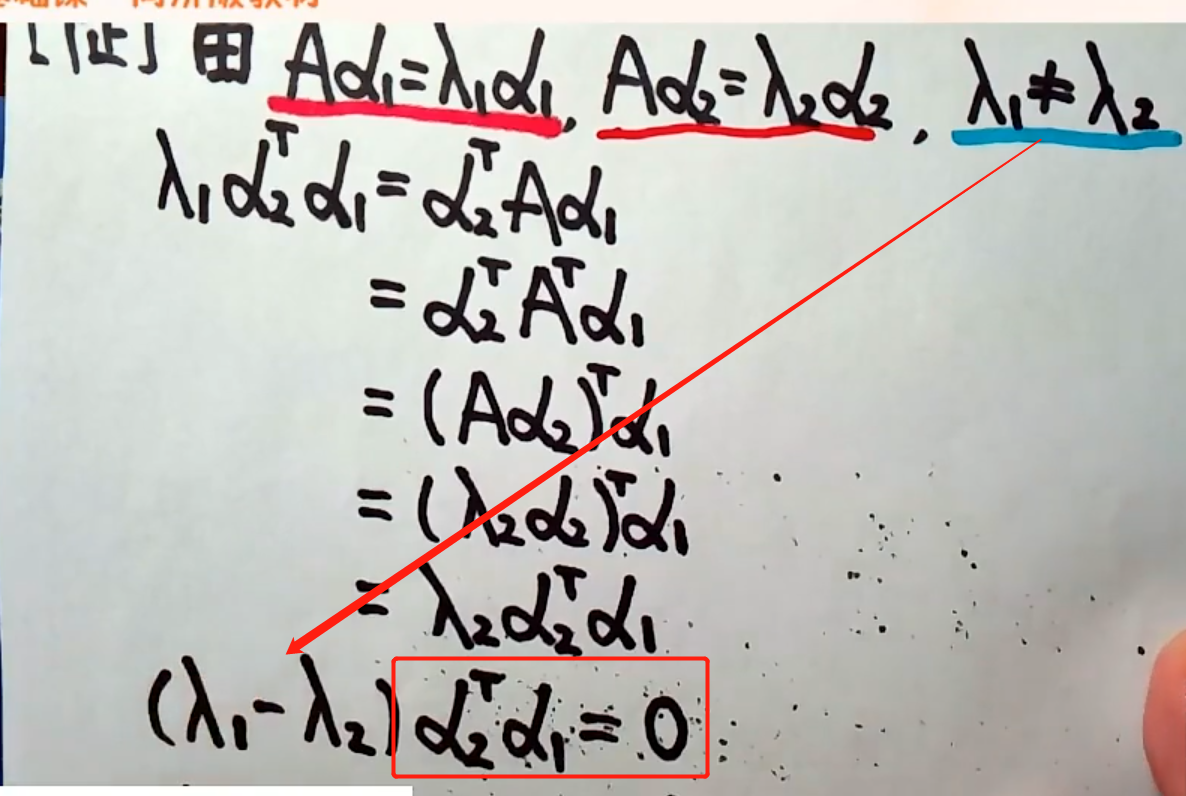 [证] 由 Aα₁=λ₁α₁, Aα₂=λ₂α₂, λ₁≠λ₂
λ₁α₂ᵀα₁=α₂ᵀAα₁
=α₂ᵀAᵀα₁
=(Aα₂)ᵀα₁
=(λ₂α₂)ᵀα₁
=λ₂α₂ᵀα₁
(λ₁-λ₂)α₂ᵀα₁=0